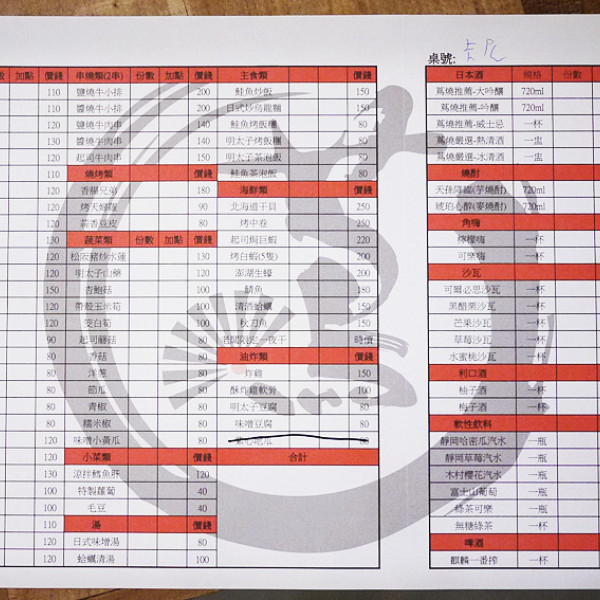 數 加點 價錢 串燒類(2串) 份數 加點 價錢 主食類 價錢
110 鹽燒牛小排 200 鮭魚炒飯 150
120 醬燒牛小排 200 日式炒烏龍麵 150
110 鹽燒牛肉串 140 鮭魚烤飯糰 80
130 醬燒牛肉串 140 明太子烤飯糰 80
120 起司牛肉串 150 明太子茶泡飯 80
110 燒烤類 價錢 鮭魚茶泡飯 80
120 香腸兄弟 180 海鮮類 價錢
120 烤天婦羅 90 北海道干貝 250
120 蒜香豆皮 80 烤中卷 250
130 蔬菜類 份數 加點 價錢 起司焗巨蝦 220
120 松阪豬炒水蓮 130 烤白蝦(5隻) 200
120 明太子山藥 120 澎湖生蠔 200
150 杏鮑菇 100 鯖魚 180
120 帶殼玉米筍 100 清酒蛤蠣 150
120 茭白筍 100 秋刀魚 150
90 起司蘑菇 80 一夜干 時價
80 香菇 80 油炸類 價錢
80 洋蔥 80 炸雞 150
80 節瓜 80 酥炸雞軟骨 100
80 青椒 80 明太子豆腐 80
80 糯米椒 80 味噌豆腐 80
120 味噌小黃瓜 80
120 小菜類 價錢 合計
130 涼拌鱈魚肝 120
100 特製蘿蔔 40
100 毛豆 40
110 湯 價錢
120 日式味增湯 80
120 蛤蠣清湯 100
桌號:
日本酒 規格 份數
蔦燒推薦-大吟釀 720ml
蔦燒推薦-吟釀 720ml
蔦燒推薦-威士忌 一杯
蔦燒嚴選-熱清酒 一盅
蔦燒嚴選-冰清酒 一盅
燒酎
天孫降臨(芋燒酎) 720ml
琥珀心醉(麥燒酎) 720ml
角嗨
檸檬嗨 一杯
可樂嗨 一杯
沙瓦
可爾必思沙瓦 一杯
黑醋栗沙瓦 一杯
芒果沙瓦 一杯
草莓沙瓦 一杯
水蜜桃沙瓦 一杯
利口酒
柚子酒 一杯
梅子酒 一杯
軟性飲料
靜岡哈密瓜汽水 一瓶
靜岡草莓汽水 一瓶
木村櫻花汽水 一瓶
富士山葡萄 一瓶
綠茶可樂 一瓶
無糖綠茶 一杯
啤酒
麒麟一番搾 一杯